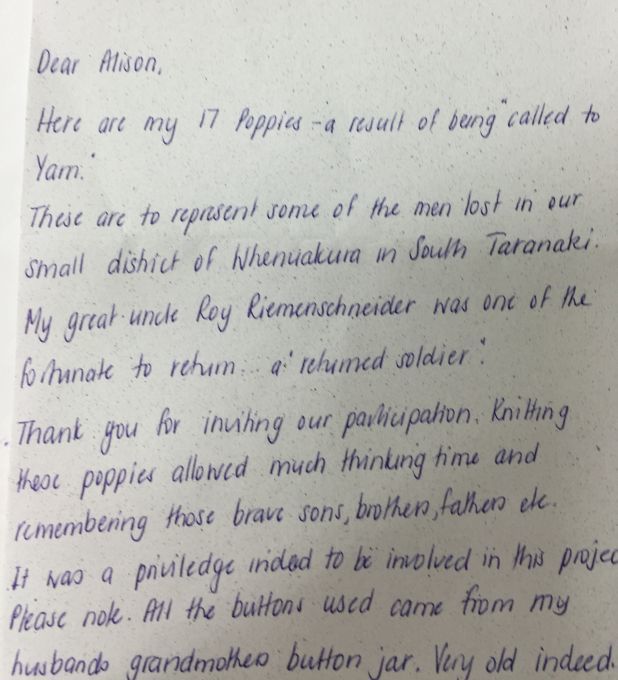 Dear Alison,
Here are my 17 Poppies - a result of being "called to
Yarn."
These are to represent some of the men lost in our
small district of Whenuakura in South Taranaki.
My great-uncle Roy Riemenschneider was one of the
fortunate to return... a "returned soldier".
Thank you for inviting our participation. Knitting
these poppies allowed much thinking time and
remembering those brave sons, brothers, fathers etc.
It was a priviledge indeed to be involved in this projec
Please note. All the buttons used came from my
husbands grandmothers button jar. Very old indeed.